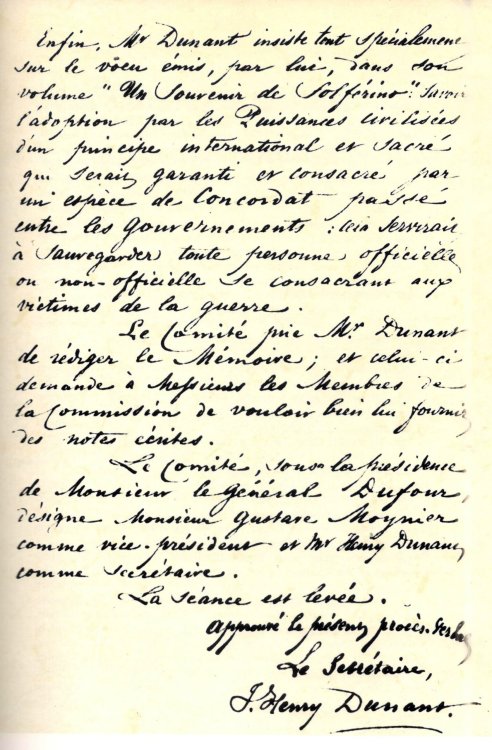 Enfin, Mr Dunant insiste tout spécialement
sur le vœu émis, par lui, dans son
volume "Un Souvenir de Solférino": Savoir
l'adoption par les Puissances civilisées
d'un principe international et sacré
qui serait garanti et consacré par
un espèce de Concordat passé
entre les Gouvernements : cela servirait
à sauvegarder toute personne officielle
ou non-officielle se consacrant aux
victimes de la guerre.
Le Comité prie Mr Dunant
de rédiger le Mémoire ; et celui ci
demande à Messieurs les Membres de
la Commission de vouloir bien lui fournir
des notes écrites.
Le Comité, sous la présidence
de Monsieur le Général Dufour,
désigne Monsieur Gustave Moynier
comme vice-président et Mr Henry Dunant,
comme Secrétaire.
La Séance est levée.
Approuvé le présent procès-verbal
Le Secrétaire,
J. Henry Dunant.